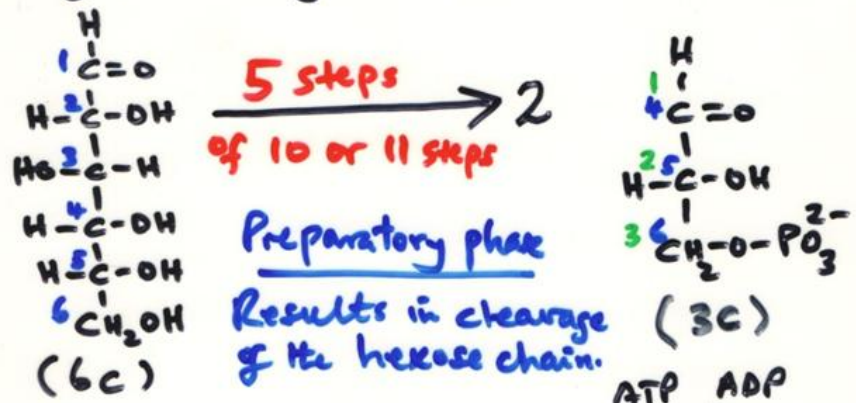 H
1 C=O
H-2C-OH
HO-3C-H
H-4C-OH
H-5C-OH
6 CH2OH
(6C)
5 steps
of 10 or 11 steps
2
Preparatory phase
Results in cleavage
of the hexose chain.
H
1
4 C=O
2 5
H-C-OH
3 6 CH2-O-PO3 2-
(3C)
ATP ADP